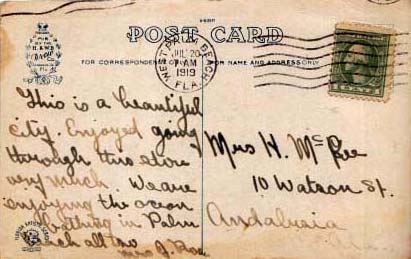 POST CARD
FOR CORRESPONDENCE
FOR NAME AND ADDRESS ONLY
WEST PALM BEACH
JUL 20
7 AM
1919
FLA.
This is a beautiful
city. Enjoyed going
through this store
very much. We are
enjoying the ocean
bathing in Palm
Beach all too
Mrs J.
Mrs H. McGee
10 Watson St.
Andalusia
Ala.